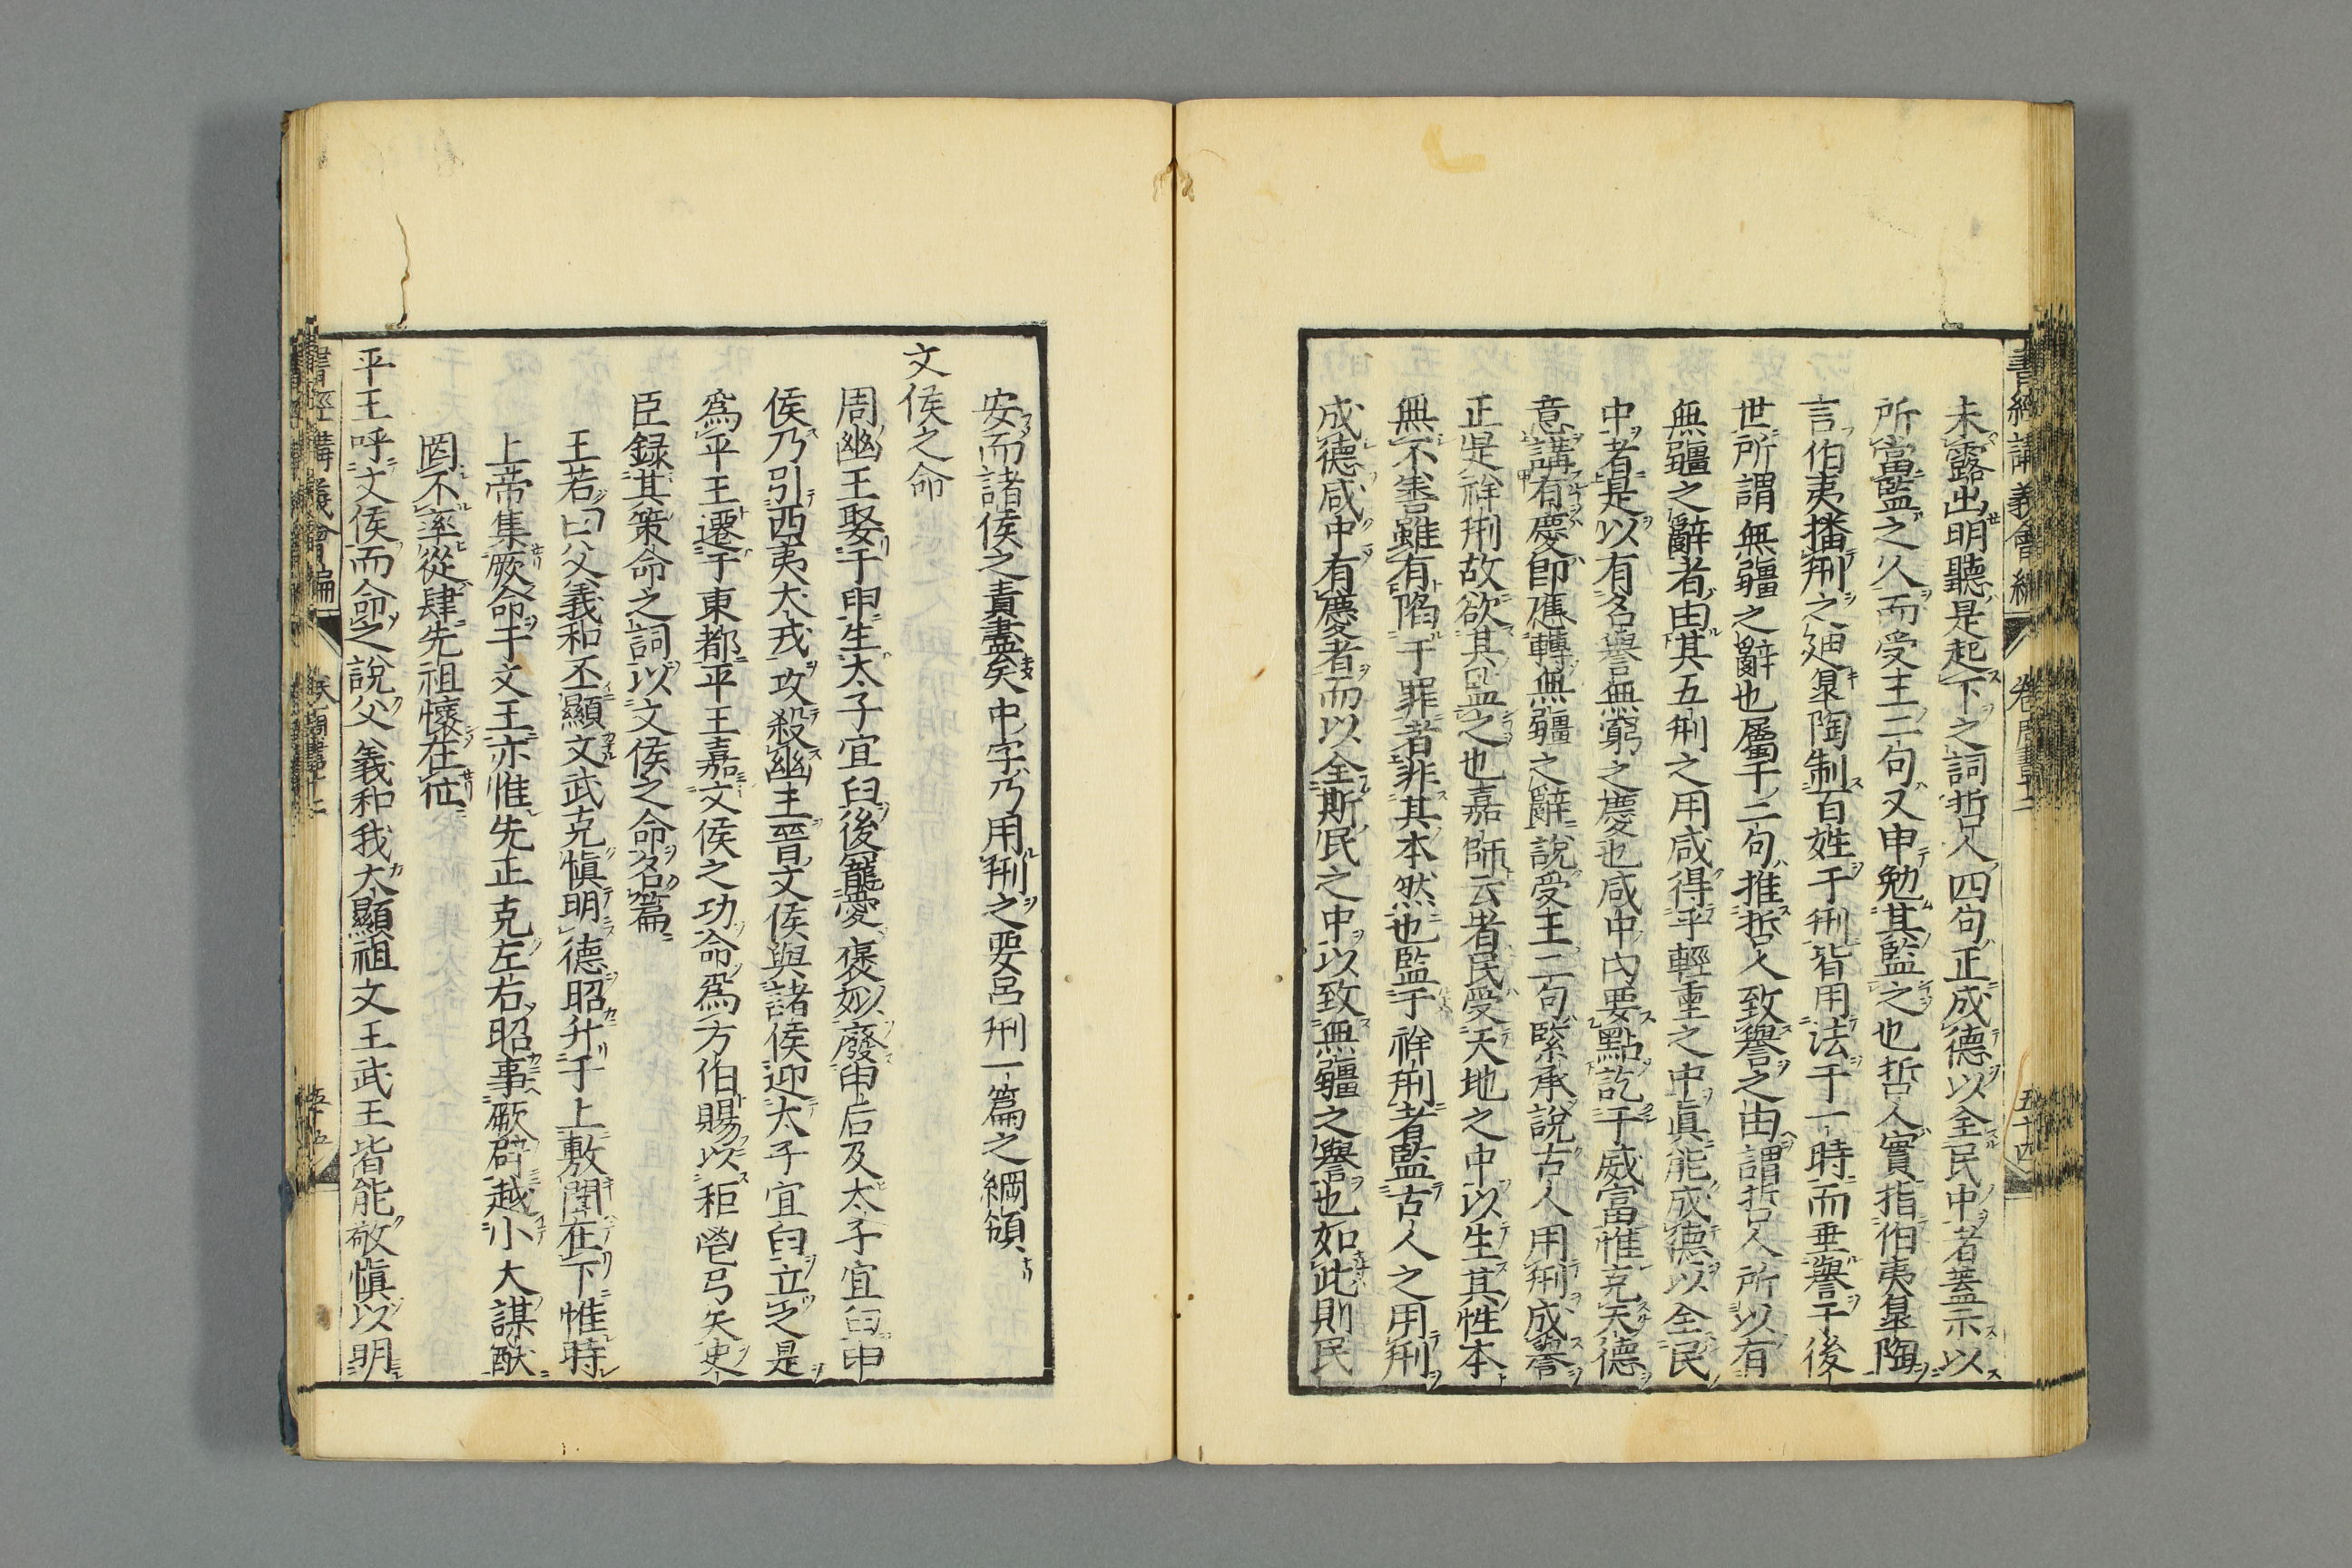 未露出明聽是起下之詞哲人四句正成德以全民中者蓋示以
所當監之人而受王二句又申勉其監之也哲人實指伯夷皐陶
言伯夷播刑之迪皐陶制百姓于刑皆用法于一時而垂譽于後
世所謂無疆之辭也屬于二句推哲人致譽之由謂哲人所以有
無疆之辭者由其五刑之用咸得乎輕重之中眞能成德以全民
中者是以有名譽無窮之慶也咸中內要點訖于威富惟克天德
意講有慶卽應轉無疆之辭說受王二句緊承說古人用刑成譽
正是祥刑故欲其監之也嘉師云者民受天地之中以生其性本
無不善雖有陷于罪者非其本然也監于祥刑者監古人之用刑
成德咸中有慶者而以全斯民之中以致無疆之譽也如此則民
安而諸侯之責盡矣中字乃用刑之要呂刑一篇之綱領
文侯之命
周幽王娶于申生太子宜臼後寵愛褒姒廢申后及太子宜臼申
侯乃引西夷犬戎攻殺幽王晉文侯與諸侯迎太子宜臼立之是
爲平王遷于東都平王嘉文侯之功命爲方伯賜以秬鬯弓矢史
臣録其策命之詞以文侯之命名篇
王若曰父義和丕顯文武克愼明德昭升于上敷聞在下惟時
上帝集厥命于文王亦惟先正克左右昭事厥辟越小大謀猷
罔不率從肆先祖懷在位
平王呼文侯而命之說父義和我大顯祖文王武王皆能敬愼以明
書經講義會編
卷周書十二
五十四
書經講義會編
周書十二
五十五